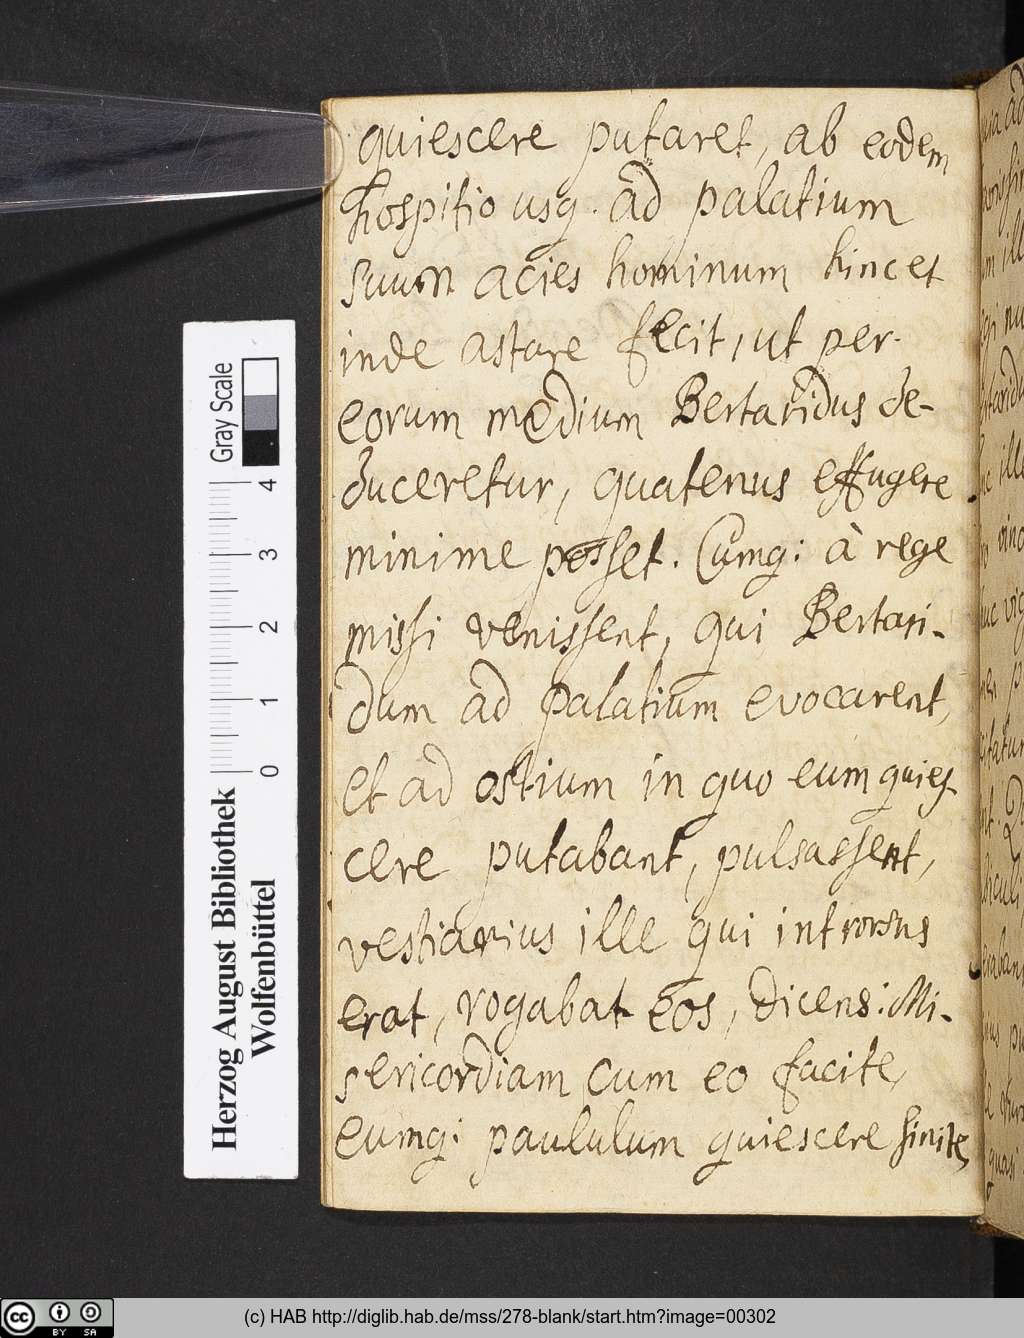 quiescere putaret, ab eodem
hospitio usq. ad palatium
suum acies hominum hinc et
inde astare fecit, ut per
eorum medium Bertaridus de-
duceretur, quatenus effugere
minime posset. Cumq: à rege
missi venissent, qui Bertari-
dum ad palatium evocarent,
et ad ostium in quo eum quies-
cere putabant, pulsassent,
vestiarius ille qui introrsus
erat, rogabat eos, dicens: Mi-
sericordiam cum eo facite,
eumq: paululum quiescere sinite,
Gray Scale
4 3 2 1 0
Herzog August Bibliothek
Wolfenbüttel
cc BY SA
(c) HAB http://diglib.hab.de/mss/278-blank/start.htm?image=00302